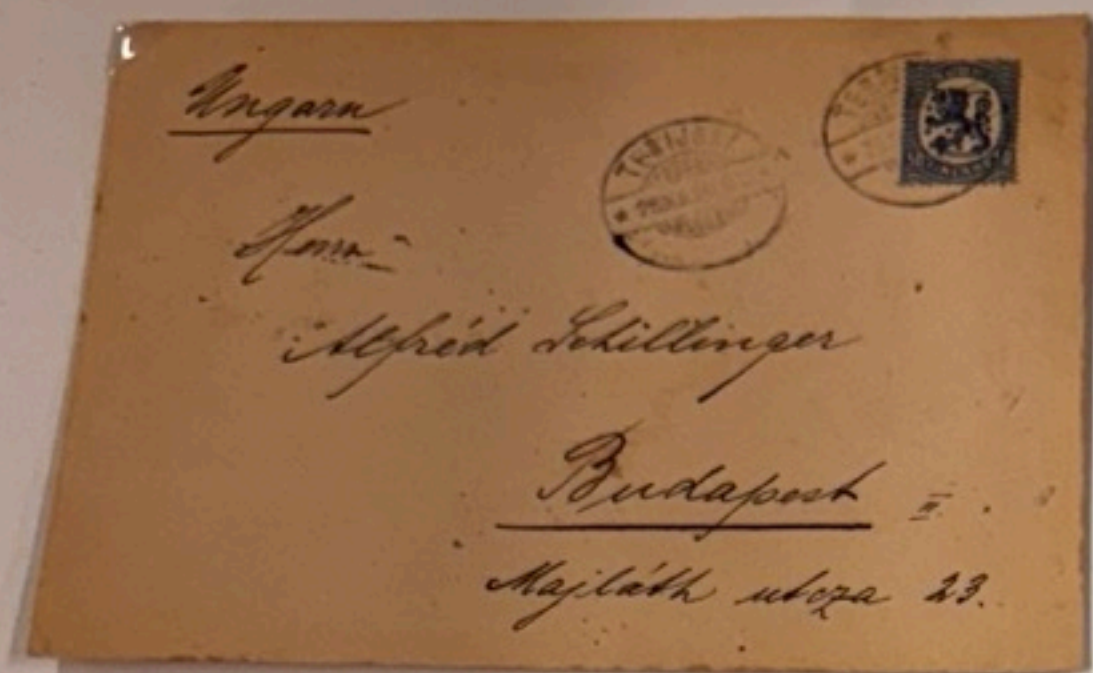 Ungarn
Herrn
Alfréd Schillinger
Budapest III.
Majláth utcza 23.